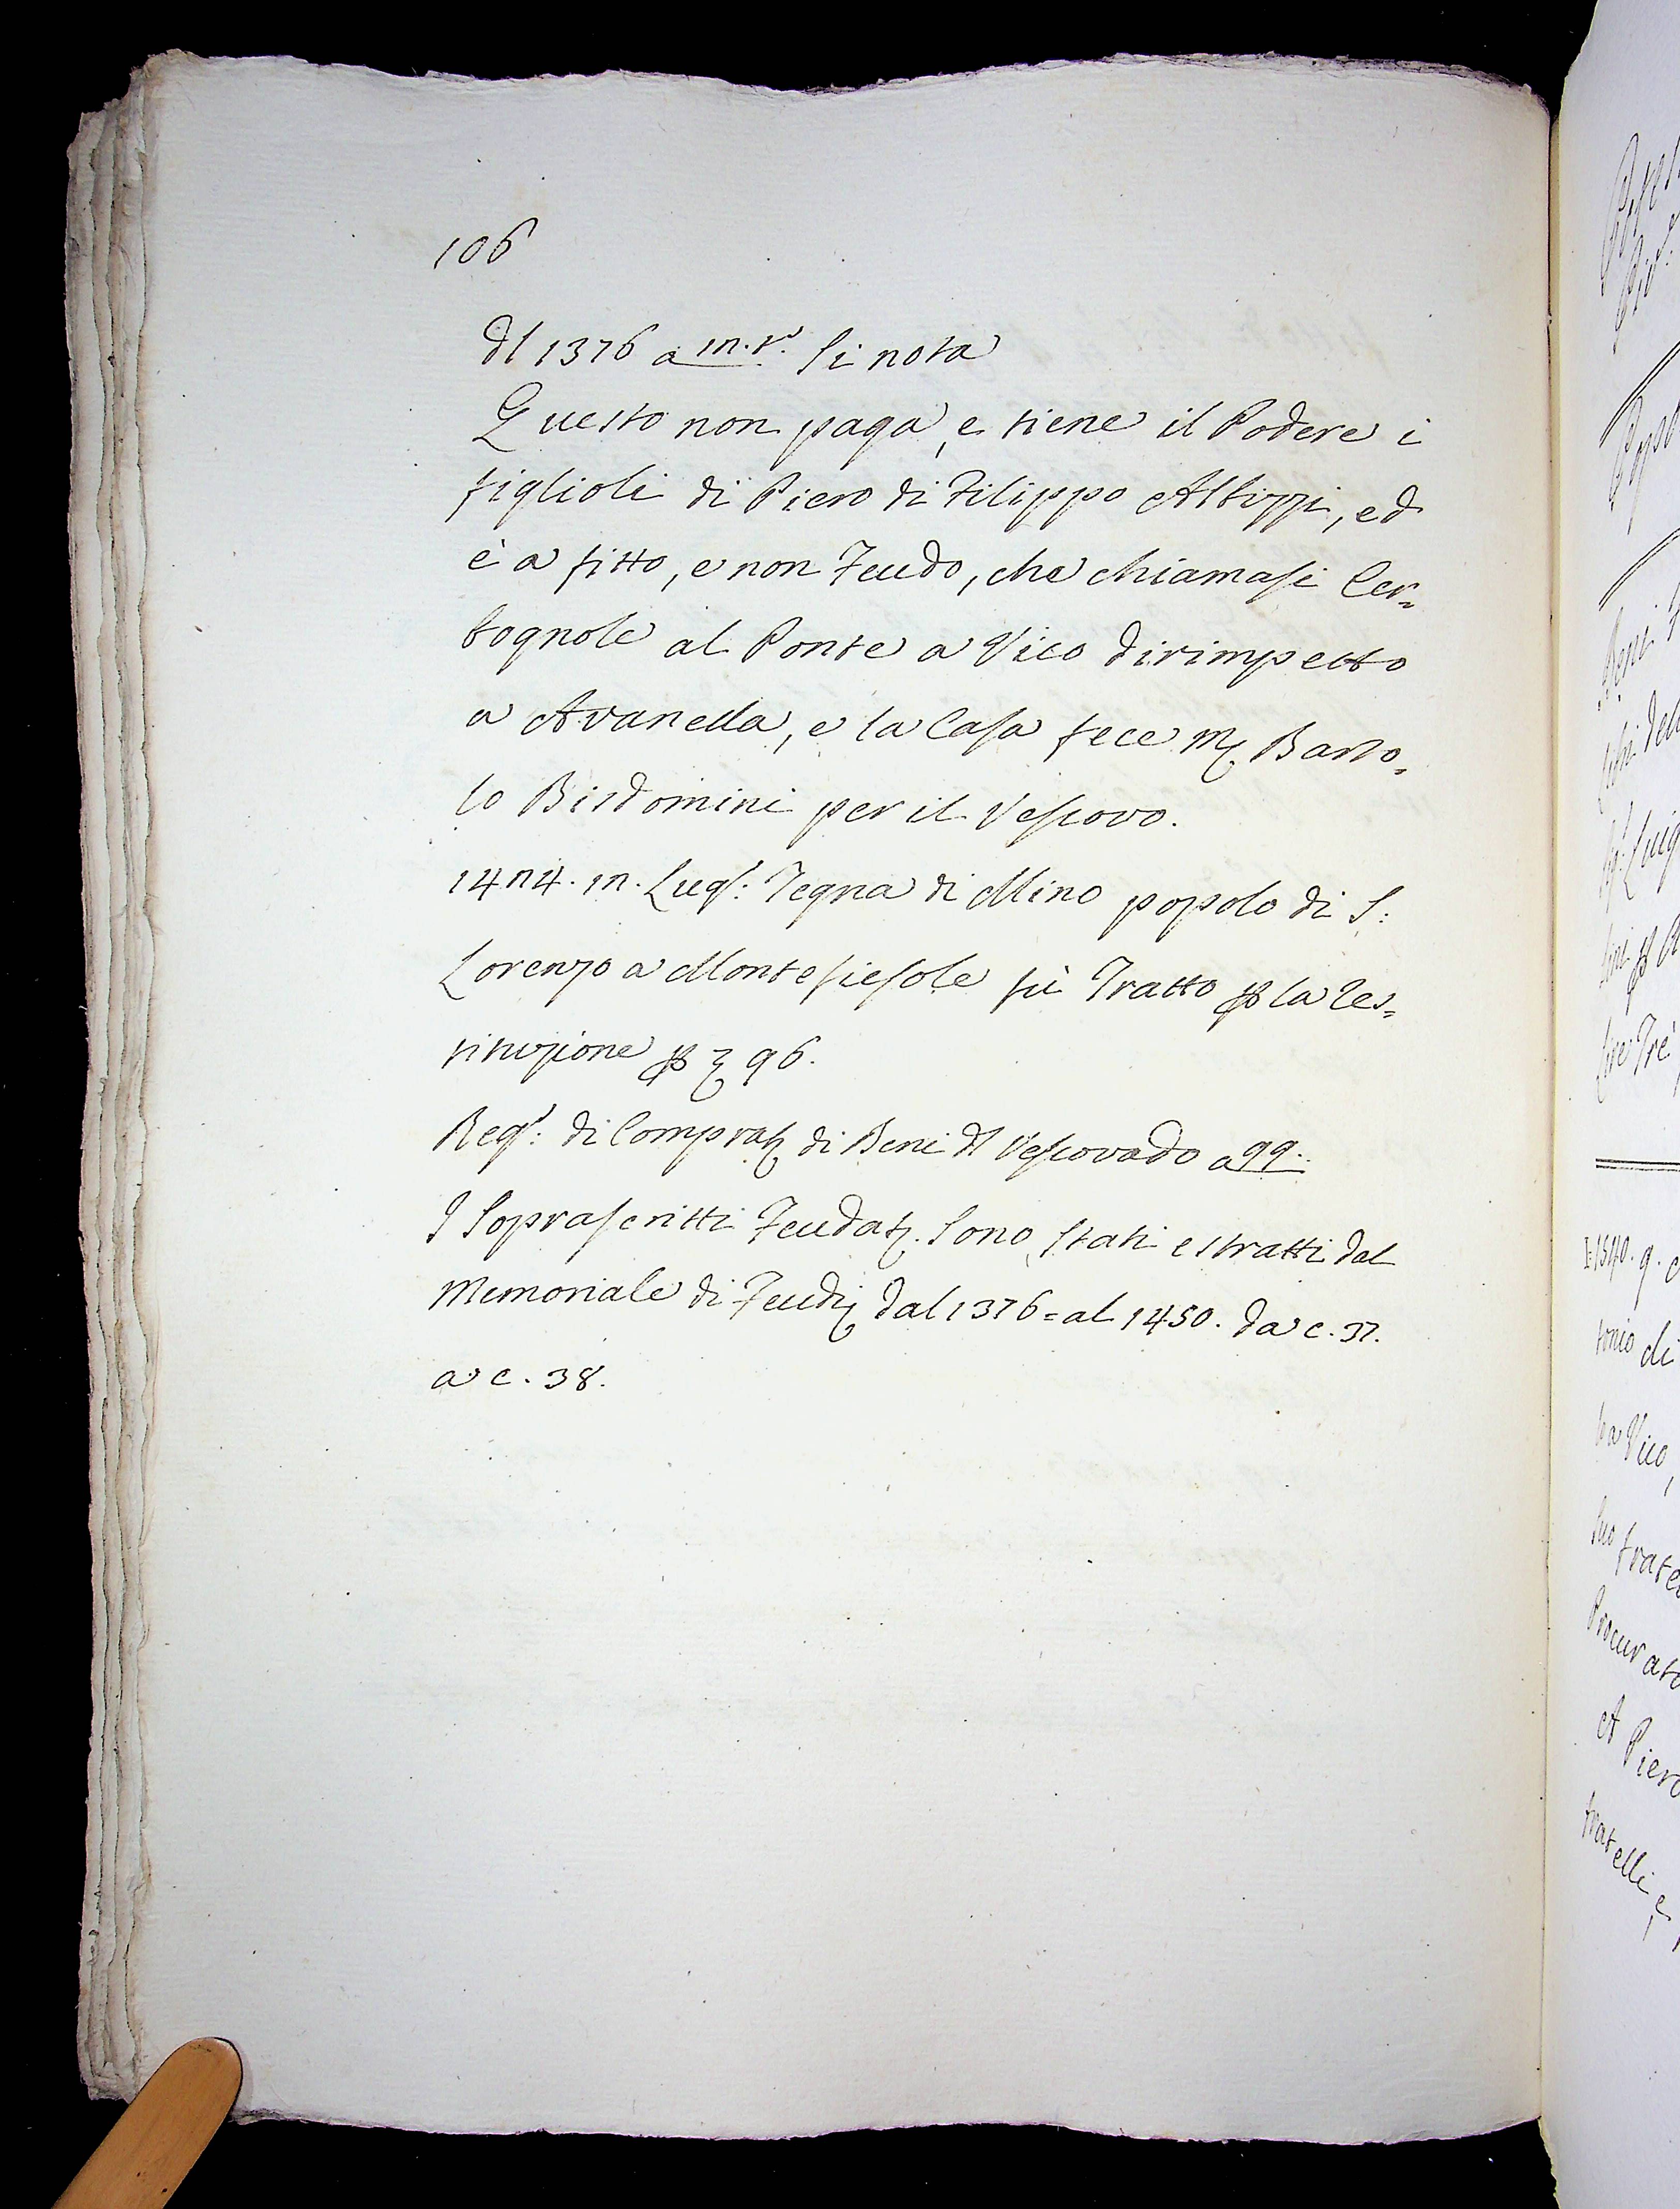 106
dl 1376 a m.v.º si nota
Questo non paga, e tiene il Podere i
figlioli di Piero di Filippo Albizzi, ed
è a fitto, e non Feudo, che chiamasi Cer=
bognole al Ponte a Vico dirimpetto
a Avanella, e la Casa fece Mʃ Barto=
lo Bisdomini per il Vescovo.
14n4. in. Lugˡ: Tegna di Mino popolo di S:
Lorenzo a Montefiesole fù Tratto ꝑ la Res=
tituzione ꝑ 96.
Regº: di Comprat di Beni dl Vescovado a 99.
I Soprascritti Feudatʃ. Sono Stati estratti dal
Memoriale di Feudiʃ dal 1376 = al 1450. da c. 37.
a c. 38.
I:1540. 9.
tonio di
a Vico,
suo frate
Procurato
A Piero
fratelli e